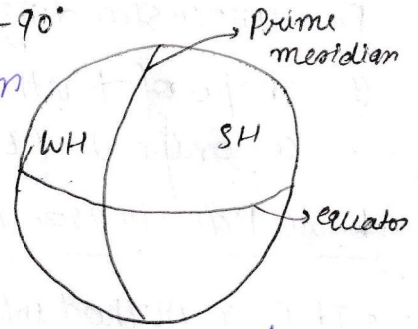 -90°
Prime
meridian
n
WH
SH
equator